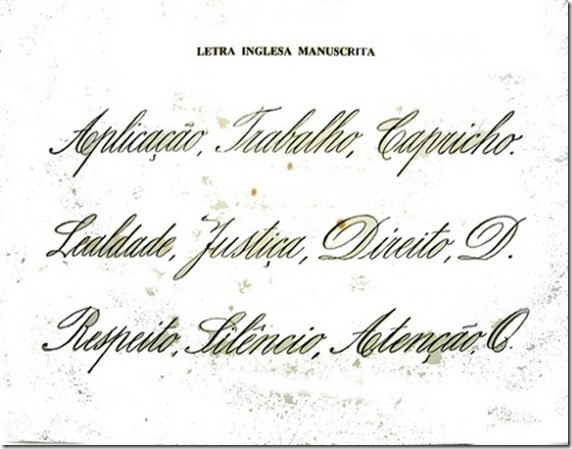 LETRA INGLESA MANUSCRITA
Aplicação, Trabalho, Capricho.
Lealdade, Justiça, Direito, D.
Respeito, Silêncio, Atenção, O.